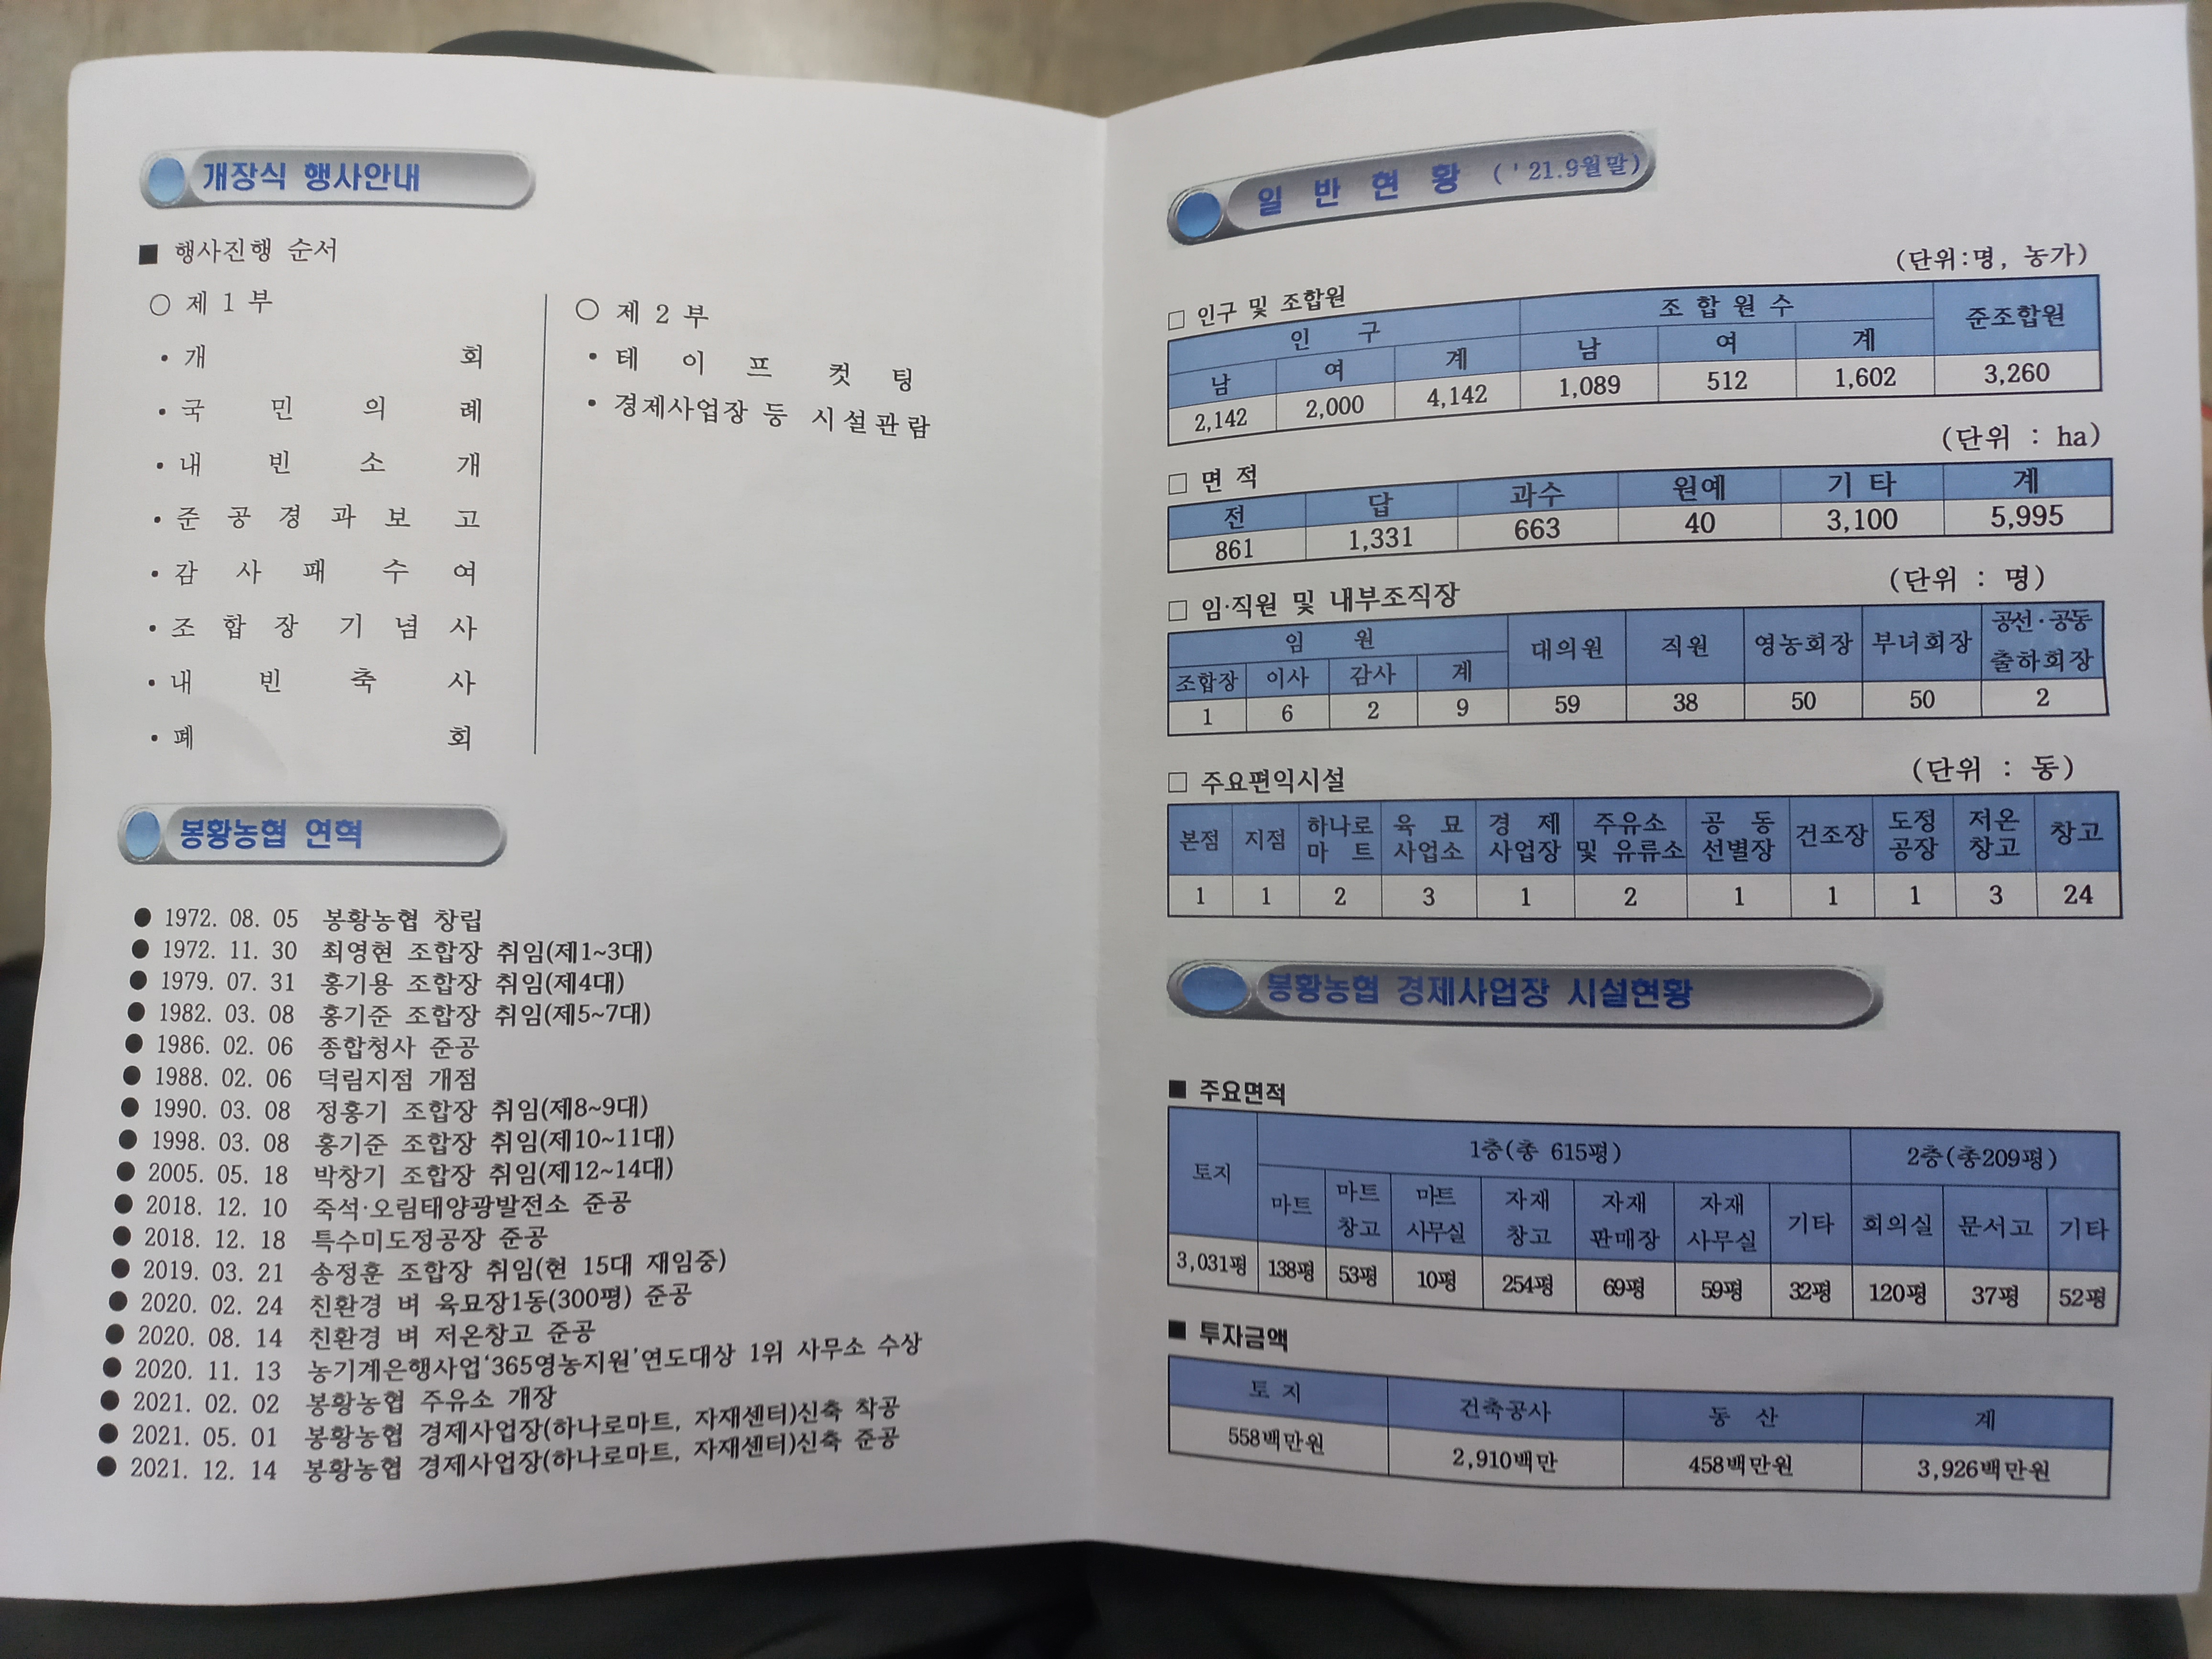 개장식 행사안내
■ 행사진행 순서
○ 제 1 부
・개 회
・국 민 의 례
・내 빈 소 개
・준 공 경 과 보 고
・감 사 패 수 여
・조 합 장 기 념 사
・내 빈 축 사
・폐 회
○ 제 2 부
・테 이 프 컷 팅
・경제사업장 등 시설관람
봉황농협 연혁
● 1972. 08. 05 봉황농협 창립
● 1972. 11. 30 최영현 조합장 취임(제1~3대)
● 1979. 07. 31 홍기용 조합장 취임(제4대)
● 1982. 03. 08 홍기준 조합장 취임(제5~7대)
● 1986. 02. 06 종합청사 준공
● 1988. 02. 06 덕림지점 개점
● 1990. 03. 08 정홍기 조합장 취임(제8~9대)
● 1998. 03. 08 홍기준 조합장 취임(제10~11대)
● 2005. 05. 18 박창기 조합장 취임(제12~14대)
● 2018. 12. 10 죽석·오림태양광발전소 준공
● 2018. 12. 18 특수미도정공장 준공
● 2019. 03. 21 송정훈 조합장 취임(현 15대 재임중)
● 2020. 02. 24 친환경 벼 육묘장1동(300평) 준공
● 2020. 08. 14 친환경 벼 저온창고 준공
● 2020. 11. 13 농기계은행사업'365영농지원'연도대상 1위 사무소 수상
● 2021. 02. 02 봉황농협 주유소 개장
● 2021. 05. 01 봉황농협 경제사업장(하나로마트, 자재센터)신축 착공
● 2021. 12. 14 봉황농협 경제사업장(하나로마트, 자재센터)신축 준공
일 반 현 황 ('21.9월말)
(단위:명, 농가)
□ 인구 및 조합원
인 구 조 합 원 수 준조합원
남 여 계 남 여 계
2,142 2,000 4,142 1,089 512 1,602 3,260
(단위 : ha)
□ 면 적
전 답 과수 원예 기 타 계
861 1,331 663 40 3,100 5,995
(단위 : 명)
□ 임·직원 및 내부조직장
임 원 대의원 직원 영농회장 부녀회장 공선·공동
출하회장
조합장 이사 감사 계
1 6 2 9 59 38 50 50 2
(단위 : 동)
□ 주요편익시설
본점 지점 하나로 육 묘 경 제 주유소 공 동 건조장 도정 저온 창고
마 트 사업소 사업장 및 유류소 선별장 공장 창고
1 1 2 3 1 2 1 1 1 3 24
봉황농협 경제사업장 시설현황
■ 주요면적
토지 1층(총 615평) 2층(총209평)
마트 마트 마트 자재 자재 자재 기타 회의실 문서고 기타
창고 사무실 창고 판매장 사무실
3,031평 138평 53평 10평 254평 69평 59평 32평 120평 37평 52평
■ 투자금액
토 지 건축공사 동 산 계
558백만원 2,910백만 458백만원 3,926백만원